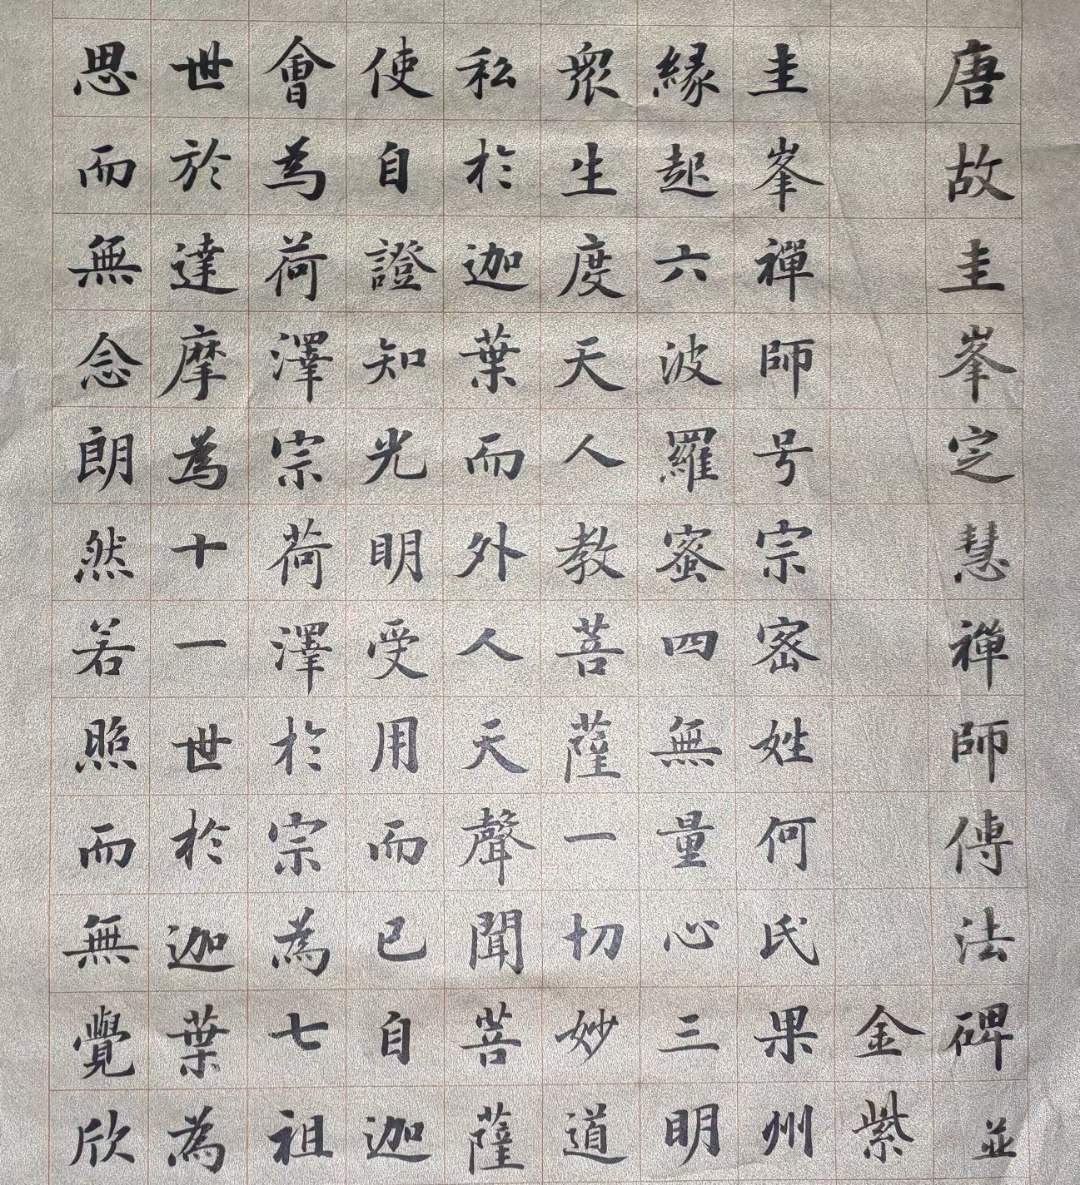 唐故圭峯定慧禪師傳法碑並
金紫
圭峯禪師号宗密姓何氏果州
緣起六波羅蜜四無量心三明
眾生度天人教菩薩一切妙道
私於迦葉而外人天聲聞菩薩
使自證知光明受用而已自迦
會為荷澤宗荷澤於宗為七祖
世於達摩為十一世於迦葉為
思而無念朗然若照而無覺欣